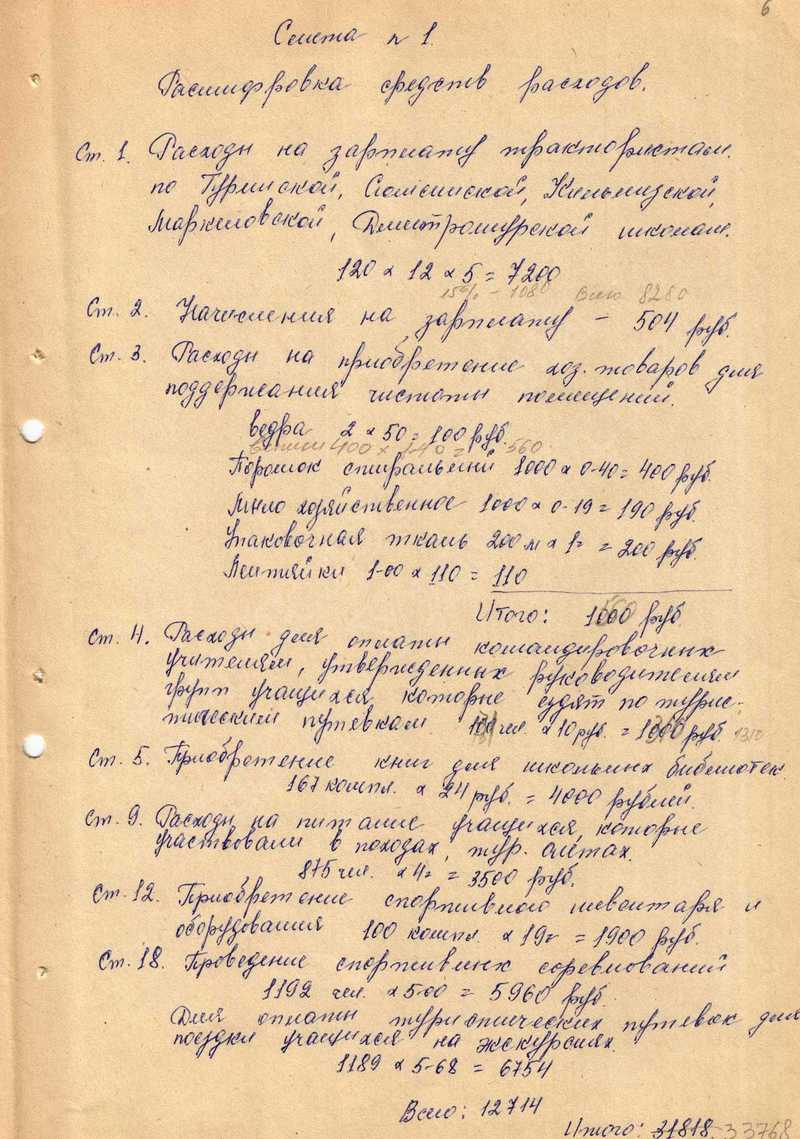 6
Смета n 1.
Расшифровка средств расходов.
Ст. 1. Расходы на зарплату трактористам.
по Туринской, Сюмсинской, Кильмезской,
Маркеловской, Дмитрошурской школам.
120 х 12 х 5 = 7200
15% - 1080 Всего 8280
Ст. 2. Начисления на зарплату - 504 руб.
Ст. 3. Расходы на приобретение хоз. товаров для
поддержания чистоты помещений.
ведра 2 х 50 = 100 руб.
400 х 1-40 = 560
Порошок стиральный 1000 х 0-40 = 400 руб.
Мыло хозяйственное 1000 х 0-19 = 190 руб.
Упаковочная ткань 200 м х 1= = 200 руб.
Лентяйки 1-00 х 110 = 110
Итого: 1000 руб
Ст. 4. Расходы для оплаты командировочных
учителям, утвержденных руководителям
групп учащихся которые ездят по турис-
тическим путевкам чел. х 10 руб. = руб. 1310
Ст. 5. Приобретение книг для школьных библиотек
167 компл. х 24 руб. = 4000 рублей.
Ст. 9. Расходы на питание учащихся, которые
участвовали в походах, тур. слетах.
875 чел. х 4= = 3500 руб.
Ст. 12. Приобретение спортивного инвентаря и
оборудования 100 компл. х 19= = 1900 руб.
Ст. 18. Проведение спортивных соревнований
1192 чел. х 5-00 = 5960 руб.
Для оплаты туристических путевок для
поездки учащихся на экскурсиях.
1189 х 5-68 = 6754
Всего: 12714
Итого: 31818 - 33768